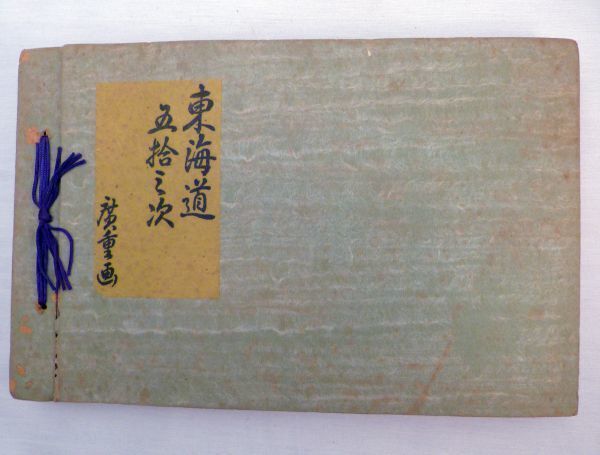 東海道
五拾三次
廣重画